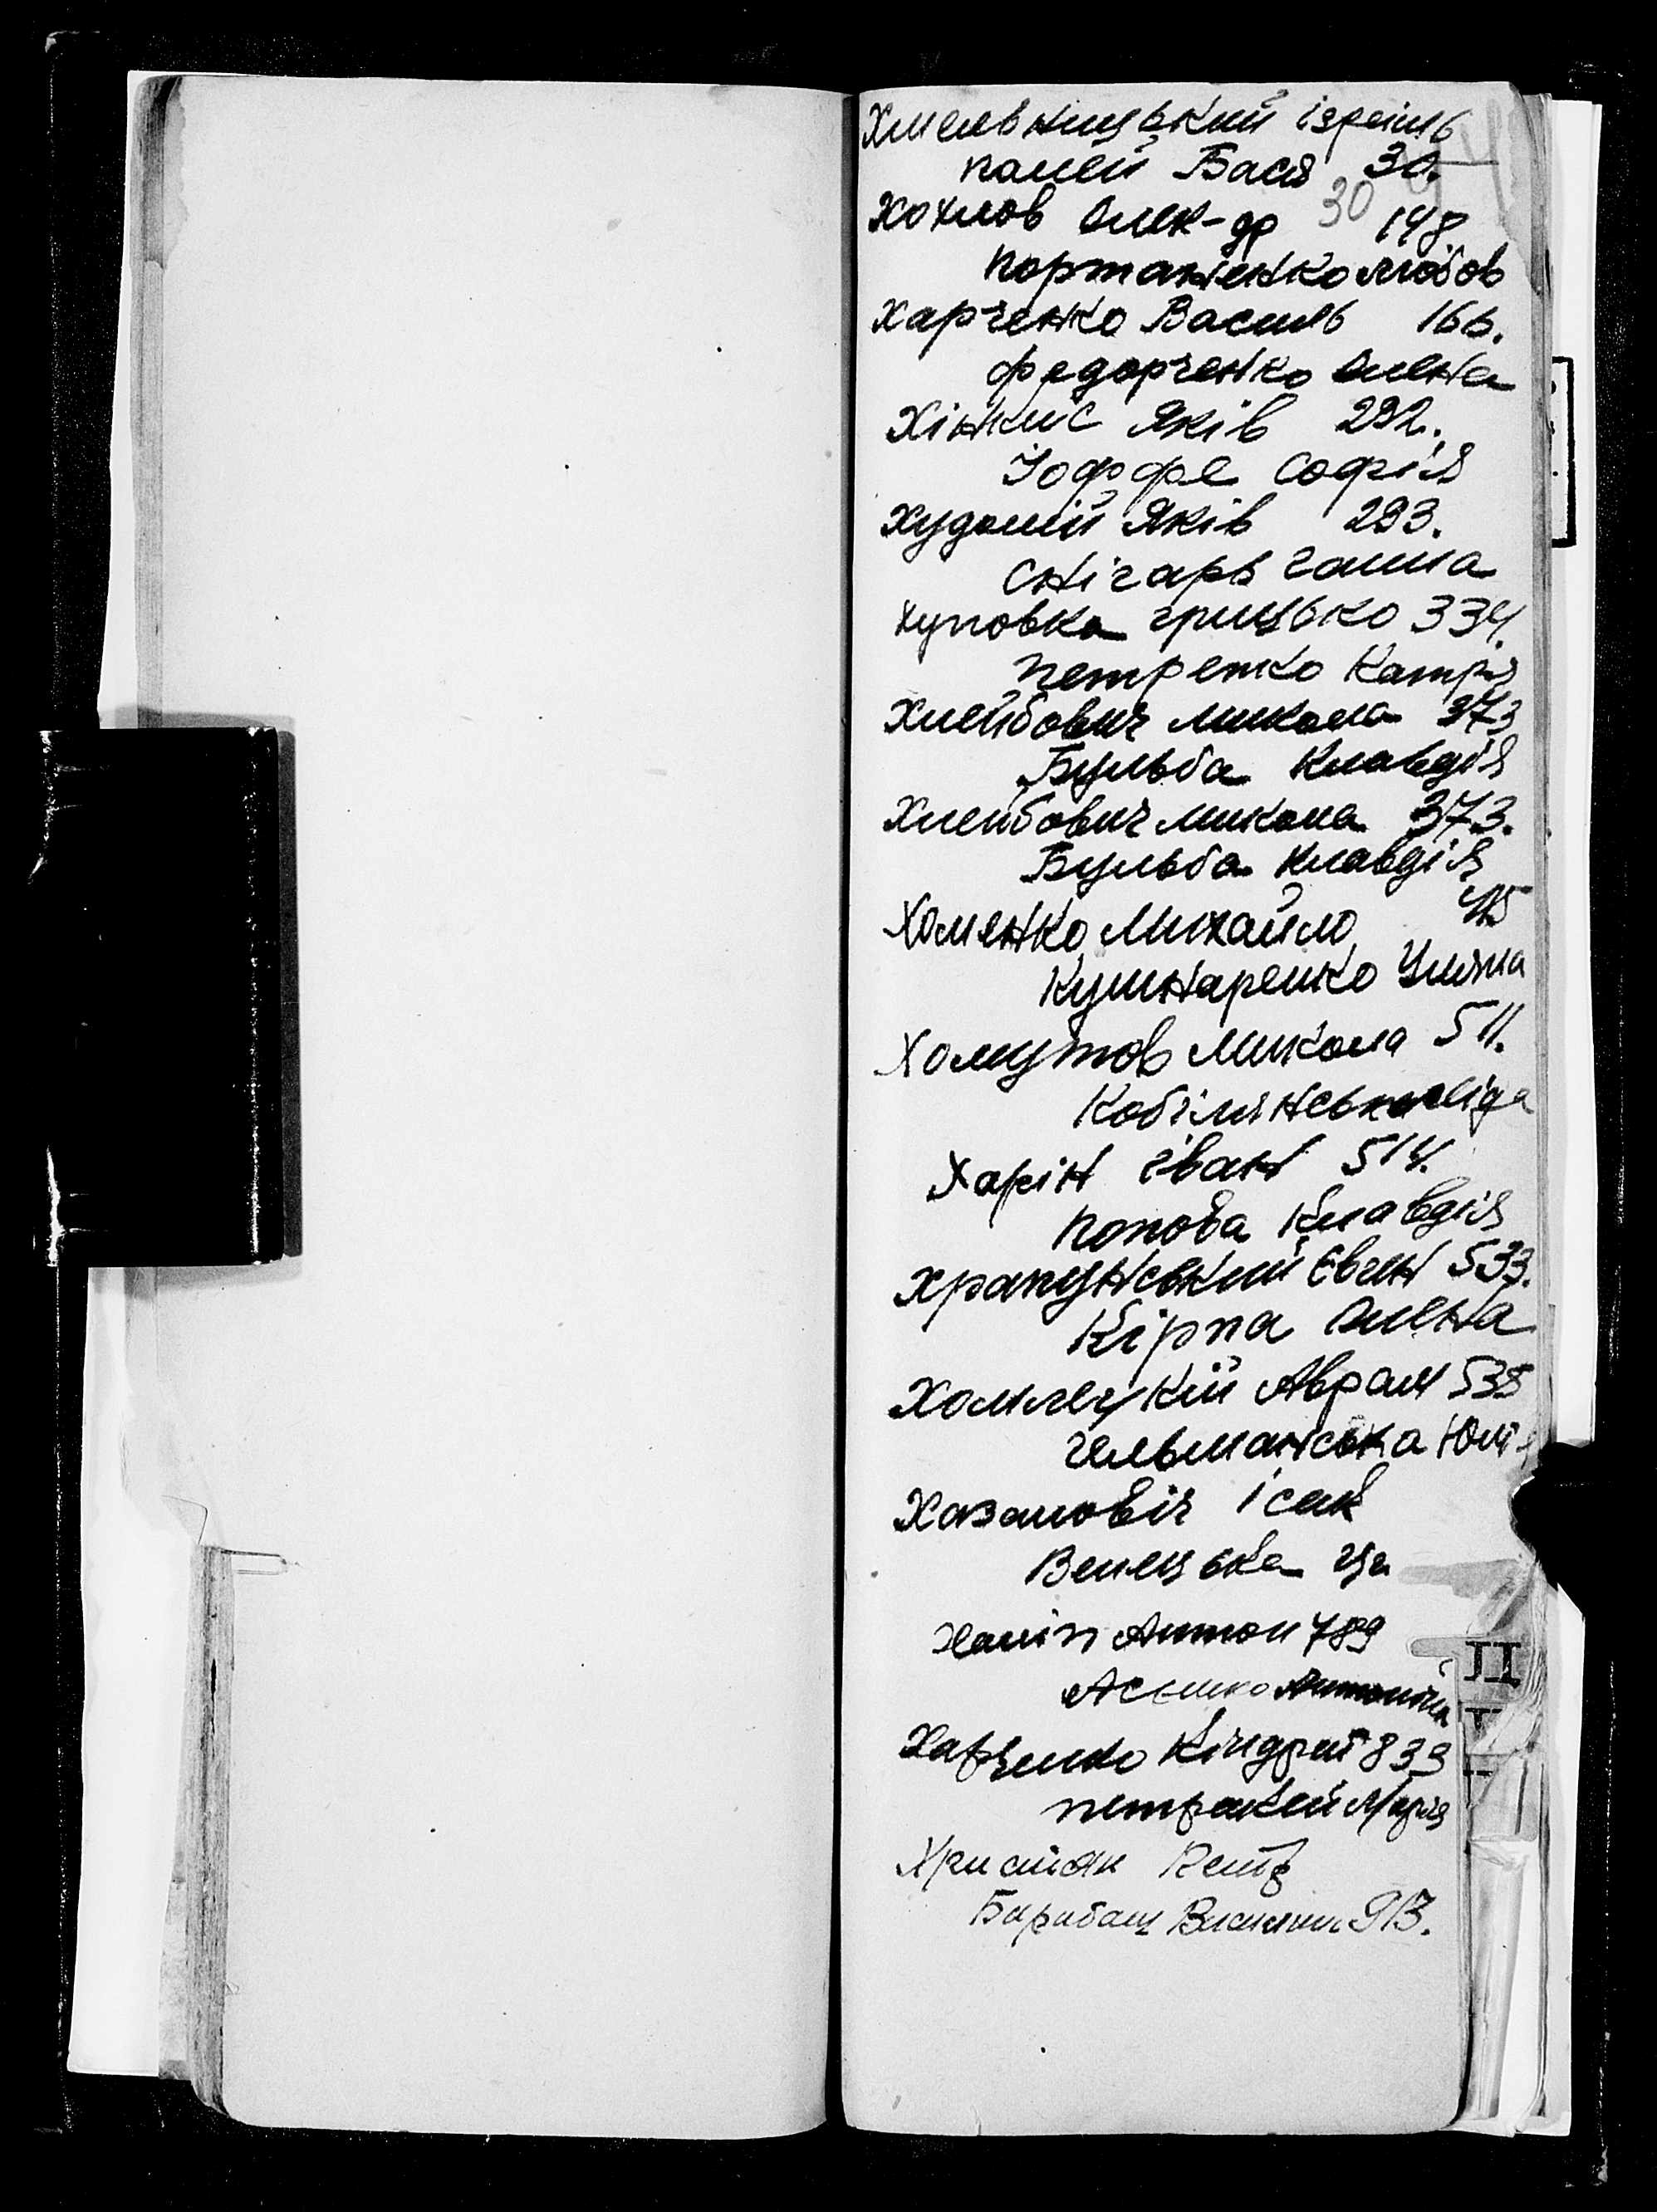 Хмельницький ізраіль
палей Бася 30.
Хохлов Олек-др 30 148.
Портаненко любов
Харченко Василь 166.
Федорченко Олена
Хінкис Яків 292.
Іоффе Софія
Худолій Яків 293.
Снігарь ганна
Хуповка грицько 334.
Петренко Катря
Хлейбович микола 373
Бульба Клавдія
Хлейбович микола 373.
Бульба Клавдія
Хоменко Михайло 415
Кушнаренко Уляна
Хомутов Микола 511.
Кобілинська ліда
Харін іван 514.
Попова Клавдія
Храпунський Євген 533.
Кірпа Олена
Аврам 538
гельманська Юлія
Хазановіч Ісак
789
Антоніна
Харченко Кіндрат 839
Марія
Християн Петр
Барабаш 913.